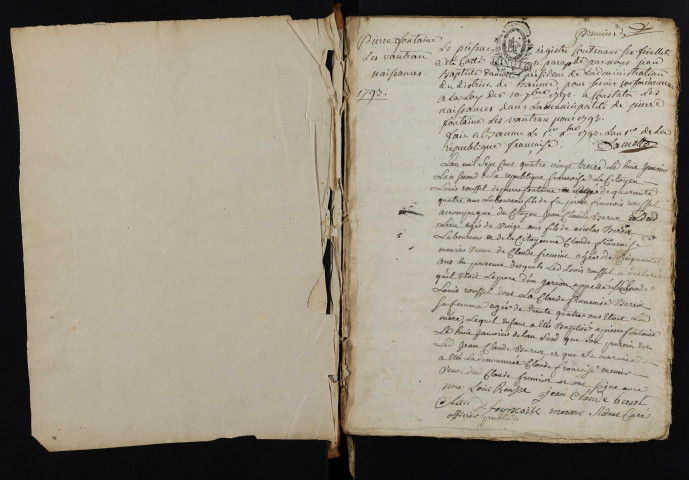 Premier
Pierre fontaine
Les vautran
naissances.
1793.
Le présent registre Contenant six feuillets
a été Cotté et paraphé par nous jean
Baptiste président de L'administration
du district de Baume pour servir conformément
a La Loy du 20 7bre 1792. a Constater les
naissances dans La municipalité de pierre
fontaine Les vautran pour 1793.
fait a Baume le 1er xbre 1792. L'an 1er de la
république françoise.
L'an mil sept cent quatre vingt treize Le huit janvier
L'an second de La republique françoise Le Citoyen
Louis rousset de pierrefontaine agé de quarante
quatre ans Laboureur fils de fu pierre francois rousset
accompagné du Citoyen Jean Claude
Lieu agé de vingt ans fils de nicolas
Laboureur et de La Citoyenne Claude françoise
veuve de Claude agée de Cinquante
ans en presence desquels Led Louis rousset a déclaré
qu'il étoit Le pere d'un garçon appellé
Louis rousset dont La Claude françoise
sa femme agée de trente quatre ans étoit La
mère, Lequel enfant a été Baptisé a pierrefontaine
Le huit janvier de L'an susd que son parrein est
Led Jean Claude et que Sa marraine
a été La denommée Claude françoise
veuve de Claude et ont signé avec
nous Loui Rousse jean Claude
Claude françoise Curé
officier public